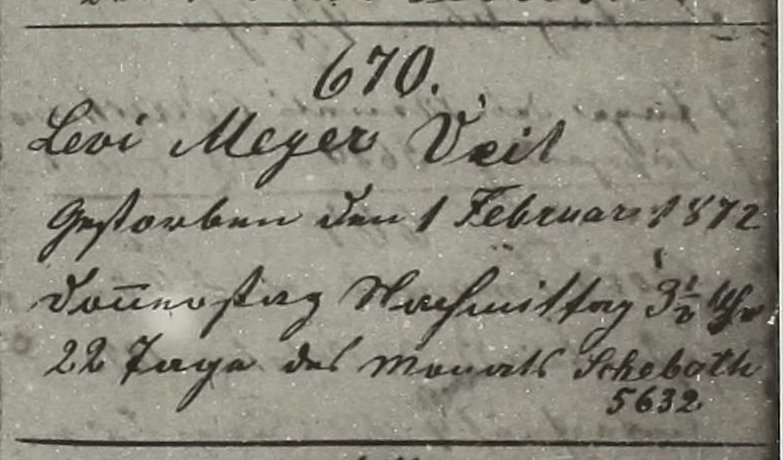 670.
Levi Meyer Veit
Gestorben den 1 Februar 1872
Donnerstag Nachmittag 3½ Uhr
22 Tage des Monats Schebath
5632